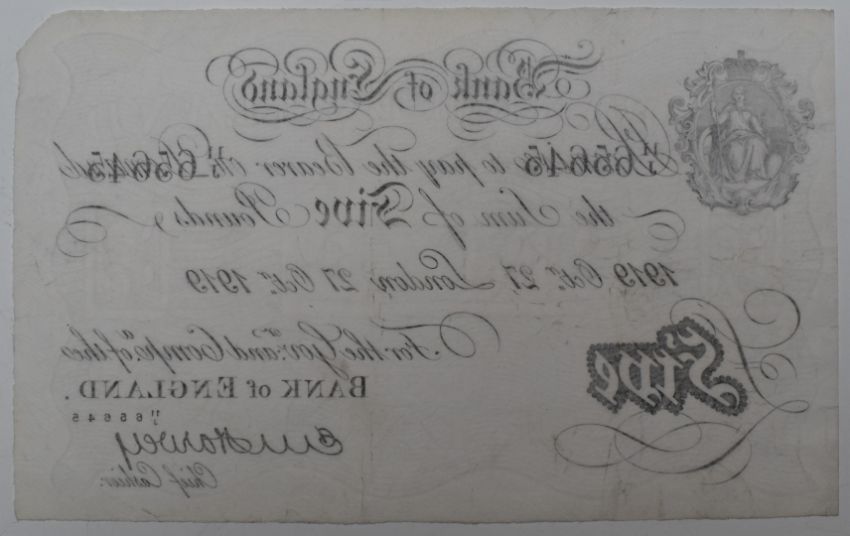 Bank of England
65645 to pay the Bearer on Demand 65645
the Sum of Five Pounds
1919 Oct. 27, London, 27 Oct. 1919
Five
For the Gov.r and Comp.a of the
BANK of ENGLAND.
65645
E M Harvey
Chief Cashier.